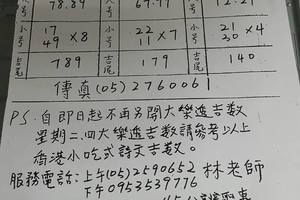 78.89 69.77 12.21
小号 17 49×8 小号 22 11×7 小号 21 30×4
吉尾 789 吉尾 179 吉尾 140
傳真(05)2760061
PS.自即日起不再另開大樂透吉数
星期二.四大樂透吉数請參考以上
香港小吃式詩文吉数。
服務電話:上午(05)2590652 林老師
下午0953539776